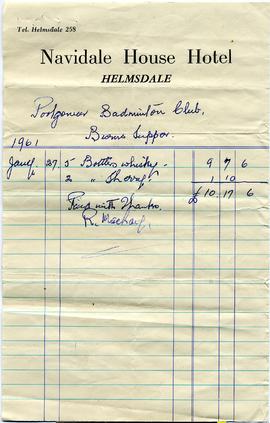 Tel. Helmsdale 258
Navidale House Hotel
HELMSDALE
Portgower Badminton Club,
Burns Supper.
1961
Jany. 27. 5 Bottles whisky. 9 7 6
2 " Sherry. 1 10
£10. 17 6
Paid with Thanks.
R. Mackay.